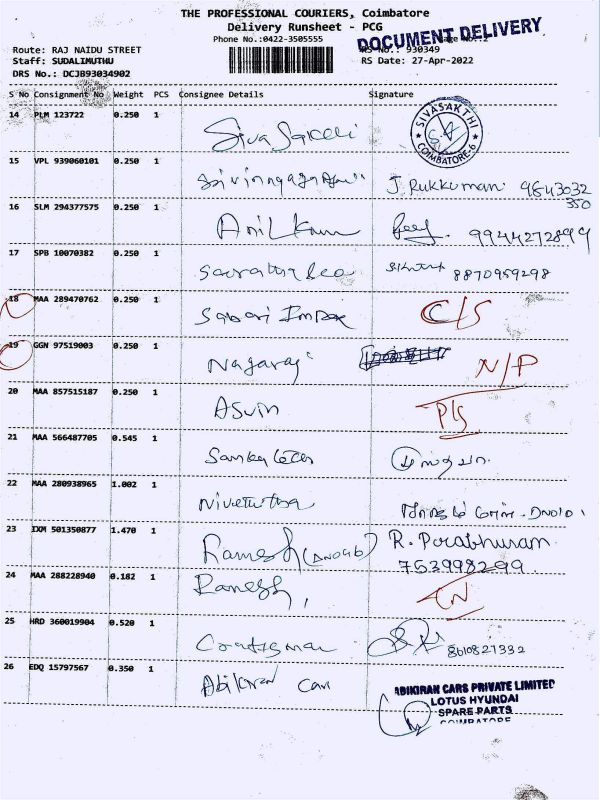 THE PROFESSIONAL COURIERS, Coimbatore
Delivery Runsheet - PCG
Phone No.:0422-3505555
DOCUMENT DELIVERY
Route: RAJ NAIDU STREET
RS No.: 930349
Staff: SUDALIMUTHU
RS Date: 27-Apr-2022
DRS No.: DCJB93034902
S No Consignment No Weight PCS Consignee Details Signature
14 PLM 123722 0.250 1 Siva Sakthi
SIVASAKTHI COIMBATORE-6
15 VPL 939060101 0.250 1 J. Rukkumani 9843032
350
16 SLM 294377575 0.250 1 Anil Kumar 9944272899
17 SPB 10070382 0.250 1 8870959298
18 MAA 289470762 0.250 1 Sabari Impex C/S
19 GGN 97519003 0.250 1 Nagaraj N/P
20 MAA 857515187 0.250 1 Asvin P/S
21 MAA 566487705 0.545 1
22 MAA 280938965 1.002 1 Nivethitha
23 IXM 501350877 1.470 1 Ramesh R. Prabhuram
753998299
24 MAA 288228940 0.182 1 Ramesh
25 HRD 360019904 0.520 1 8610821332
26 EDQ 15797567 0.350 1 Abikiran Cars
ABIKIRAN CARS PRIVATE LIMITED
LOTUS HYUNDAI
SPARE PARTS
COIMBATORE